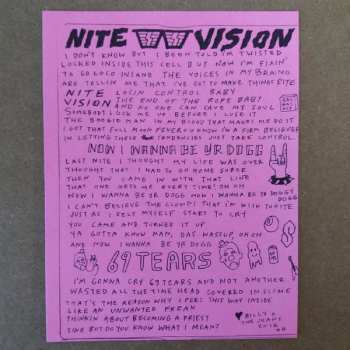 NITE VISION
I DON'T KNOW BUT I BEEN TOLD I'M TWISTED
LOCKED INSIDE THIS CELL BUT NOW I'M
TO GO LOCO INSANE THE VOICES IN MY BRAINO
ARE TELLIN ME THAT I'VE GOT TO MAKE THINGS RITE
NITE LOSIN CONTROL BABY
VISION THE END OF THE ROPE BABY
AND NO ONE CAN SAVE MY SOUL
SOMEBODY LOCK ME UP BEFORE I LOSE IT
THE BOOGIE MAN IN MY BLOOD THAT MAKES ME DO IT
I GOT THAT FULL MOON FEVER U KNOW I'M A FIRM BELIEVER
IN LETTING THESE TENDENCIES JUST TAKE CONTROL
NOW I WANNA BE YR DOGG
LAST NITE I THOUGHT MY LIFE WAS OVER
THOUGHT THAT I HAD TO GO HOME SOBER
THEN YOU CAME IN WITH THAT LINE
THAT ONE GETS ME EVERY TIME! OH OH
NOW I WANNA BE YR DOGG NOW I WANNA BE YR DOGGY
DOGG
I CAN'T BELIEVE THE CHUMP! THAT I'M WITH TONITE
JUST AS I FELT MYSELF START TO CRY
YOU CAME AND TURNED IT UP
YA GOTTA KNOW MAN, DAS WASSUP, OH OH
AND NOW I WANNA BE YR DOGG
69 TEARS
I'M GONNA CRY 69 TEARS AND NOT ANOTHER
WASTED ALL THE TIME HEAD COVERED IN SLIME
THAT'S THE REASON WHY I FEEL THIS WAY INSIDE
LIKE AN UNWANTED FREAK
THINKIN ABOUT BECOMING A PRIEST
SINE BUT DO YOU KNOW WHAT I MEAN?
BILLY &